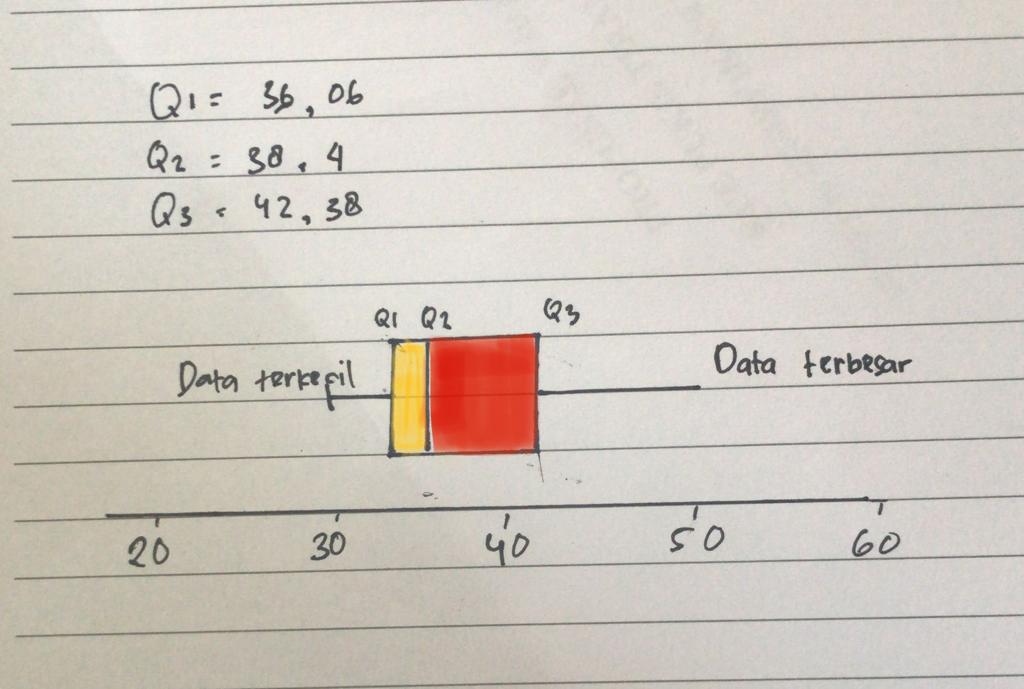 Q1 = 36,06
Q2 = 38.4
Q3 = 42,38
Q1 Q2 Q3
Data terkecil
Data terbesar
20 30 40 50 60